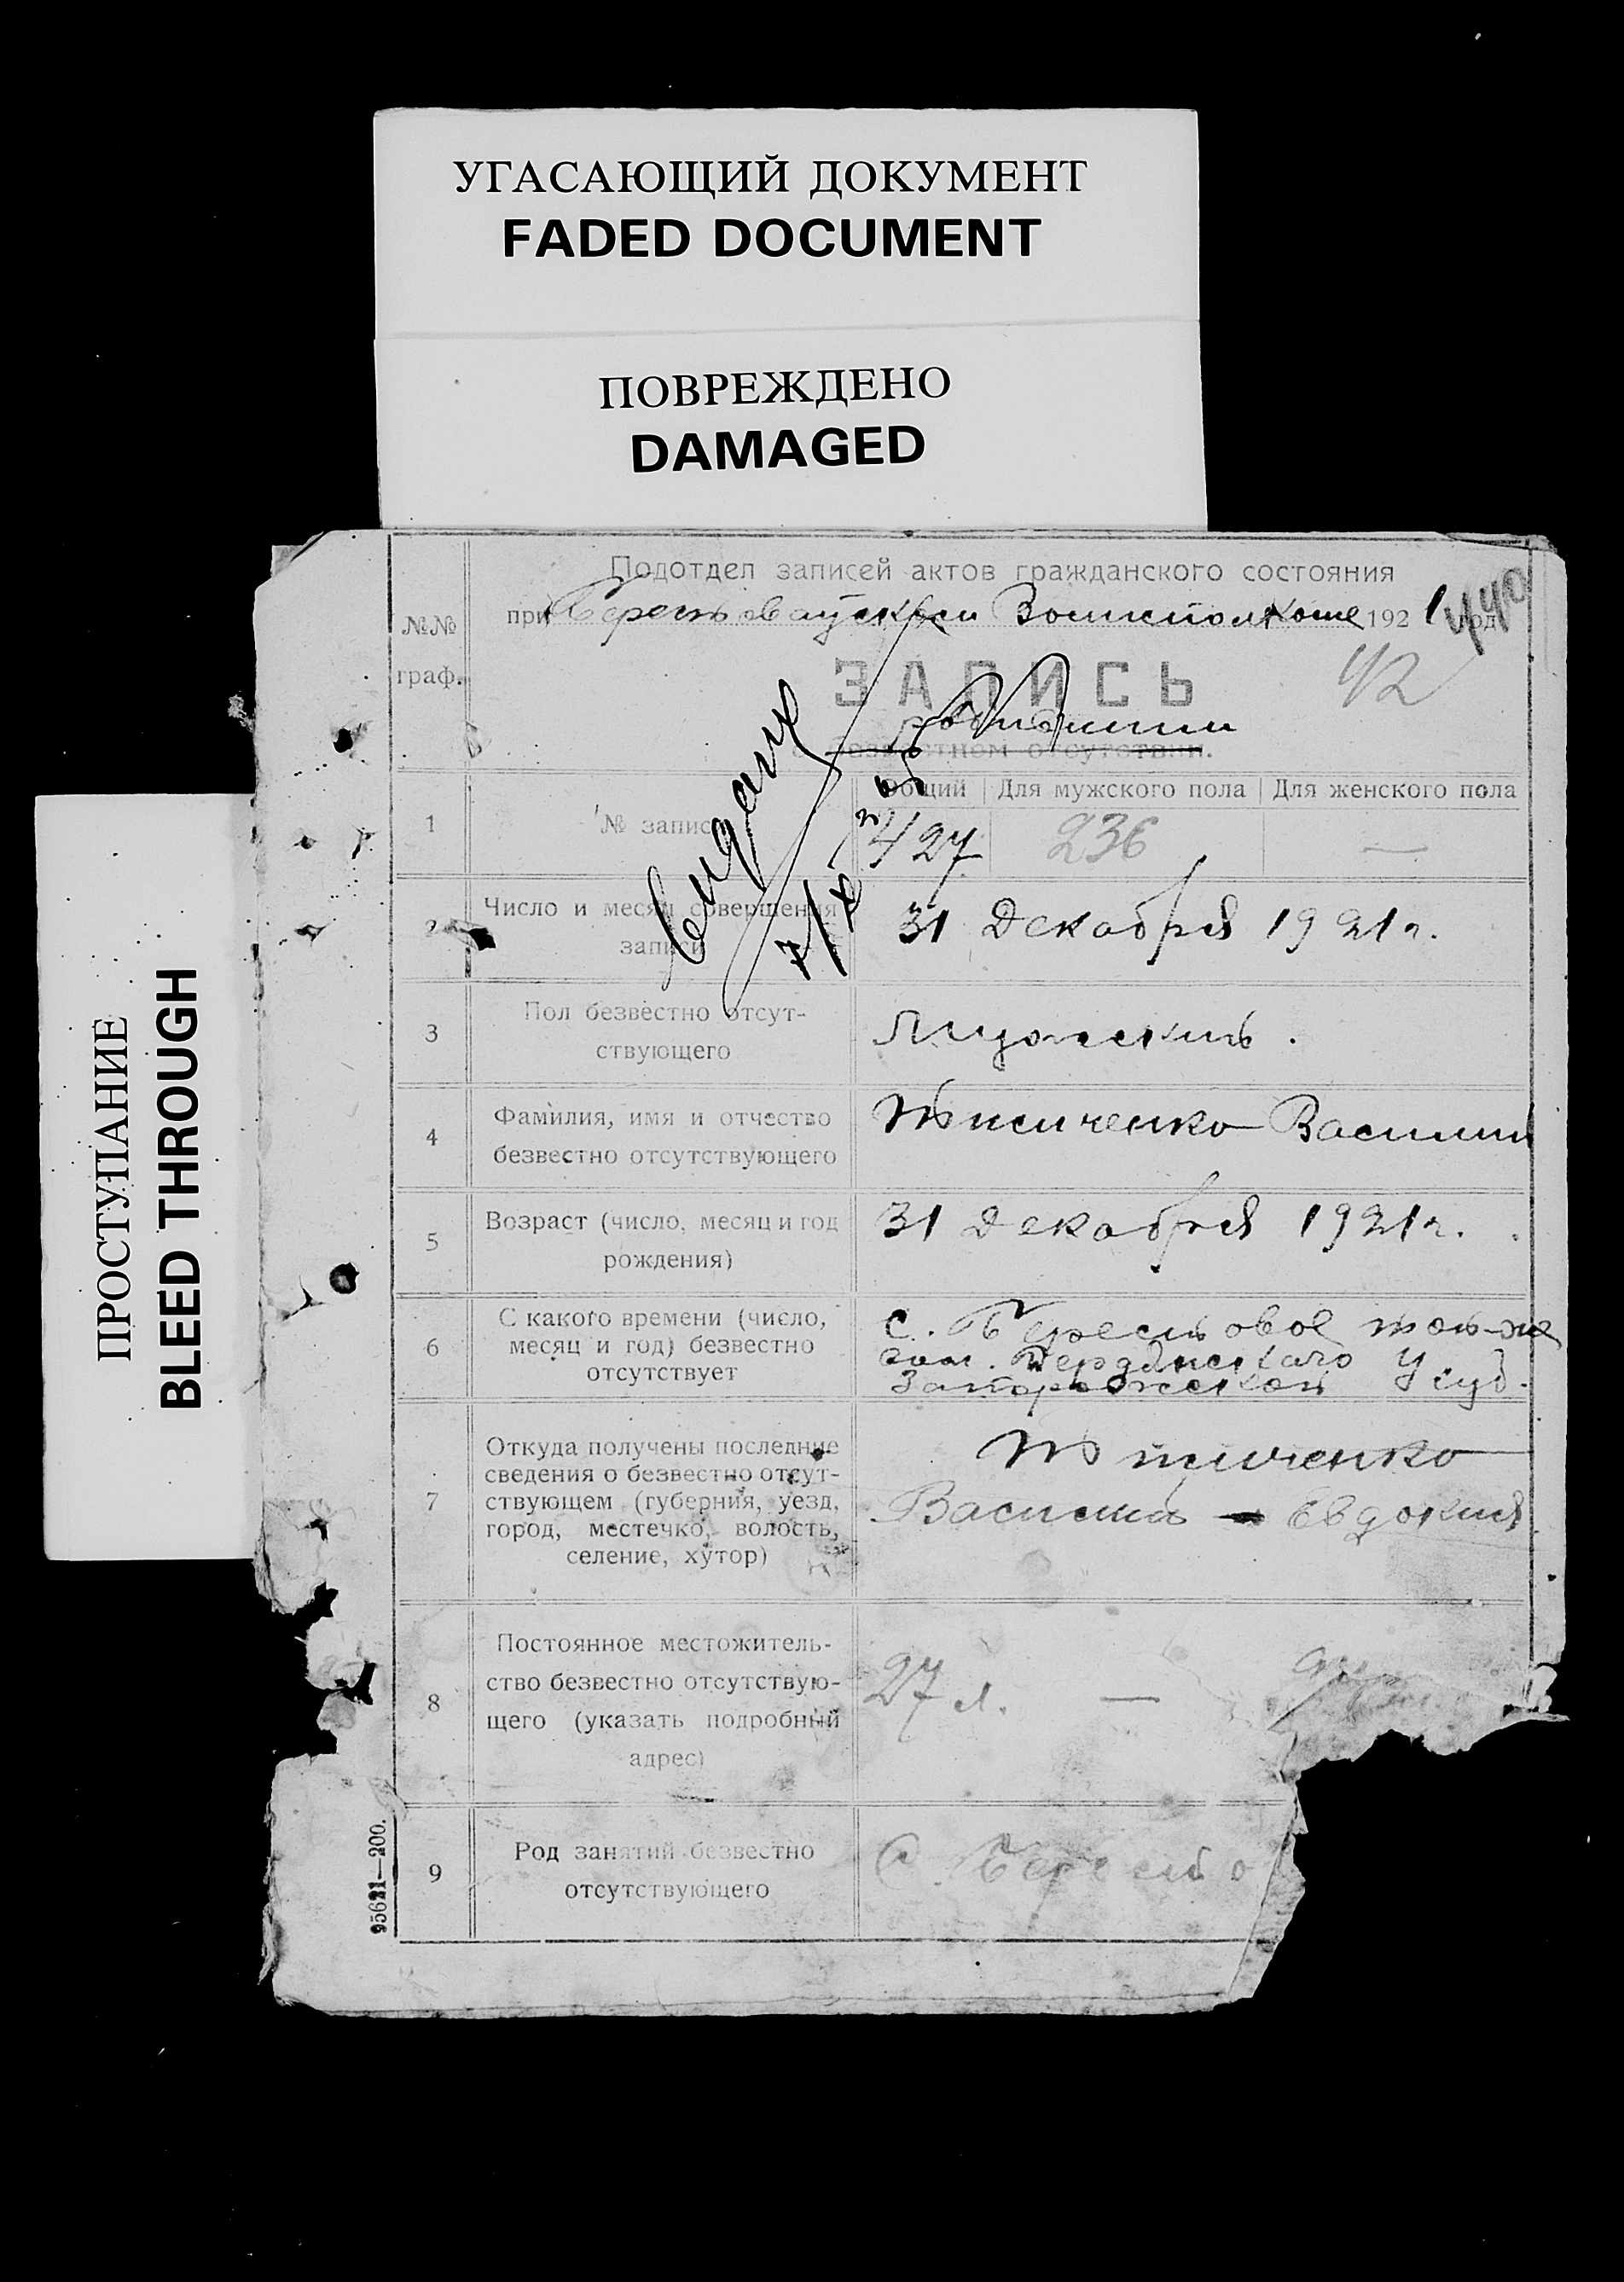 УГАСАЮЩИЙ ДОКУМЕНТ
FADED DOCUMENT
ПОВРЕЖДЕНО
DAMAGED
ПРОСТУПАНИЕ
BLEED THROUGH
Подотдел записей актов гражданского состояния
при Берестовауской Волисполкоме 1921 год
440
№№ граф.
ЗАПИСЬ
42
о безвестном отсутствии.
выдано
Общий Для мужского пола Для женского пола
1 № записи 427 236 —
2 Число и месяц совершения 31 Декабря 1921 г.
записи
3 Пол безвестно отсут-
ствующего
Мужский.
4 Фамилия, имя и отчество
безвестно отсутствующего
Василий
5 Возраст (число, месяц и год
рождения)
31 Декабря 1921 г.
6 С какого времени (число,
месяц и год) безвестно
отсутствует
с. Берестовое той-же
вол. Бердянскаго У.
Запорожской Губ.
7 Откуда получены последние
сведения о безвестно отсут-
ствующем (губерния, уезд,
город, местечко, волость,
селение, хутор)
Василий — Евдокия
8 Постоянное местожитель-
ство безвестно отсутствую-
щего (указать подробный
адрес)
27 л. —
9 Род занятий безвестно
отсутствующего
С. Бересто
95621—200.